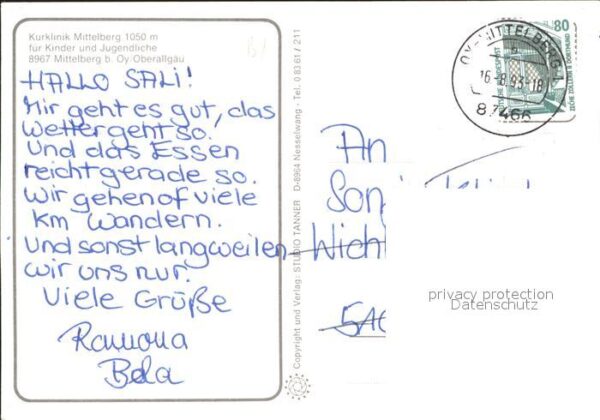 Kurklinik Mittelberg 1050 m
für Kinder und Jugendliche
8967 Mittelberg b. Oy Oberallgäu
HALLO SALI!
Mir geht es gut, das
Wetter geht so.
Und das Essen
reicht gerade so.
Wir gehen of viele
km Wandern.
Und sonst langweilen
wir uns nur.
Viele Grüße
Ramona
Bela
Copyright und Verlag: STUDIO TANNER D-8964 Nesselwang - Tel. 0 83 61 / 2 11
OY-MITTELBERG 1
a
16.-8.93-18
87466
80
DEUTSCHE BUNDESPOST
ZECHE ZOLLERN II DORTMUND
An
Son
Wicht
privacy protection
Datenschutz